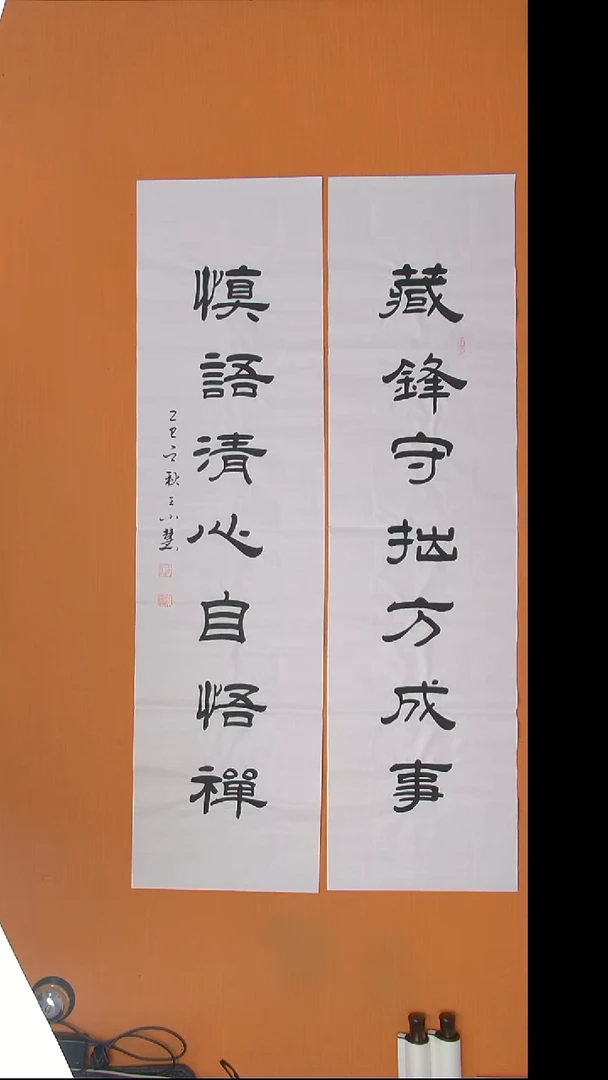 藏鋒守拙方成事
慎語清心自悟禪
乙巳立秋王小慧